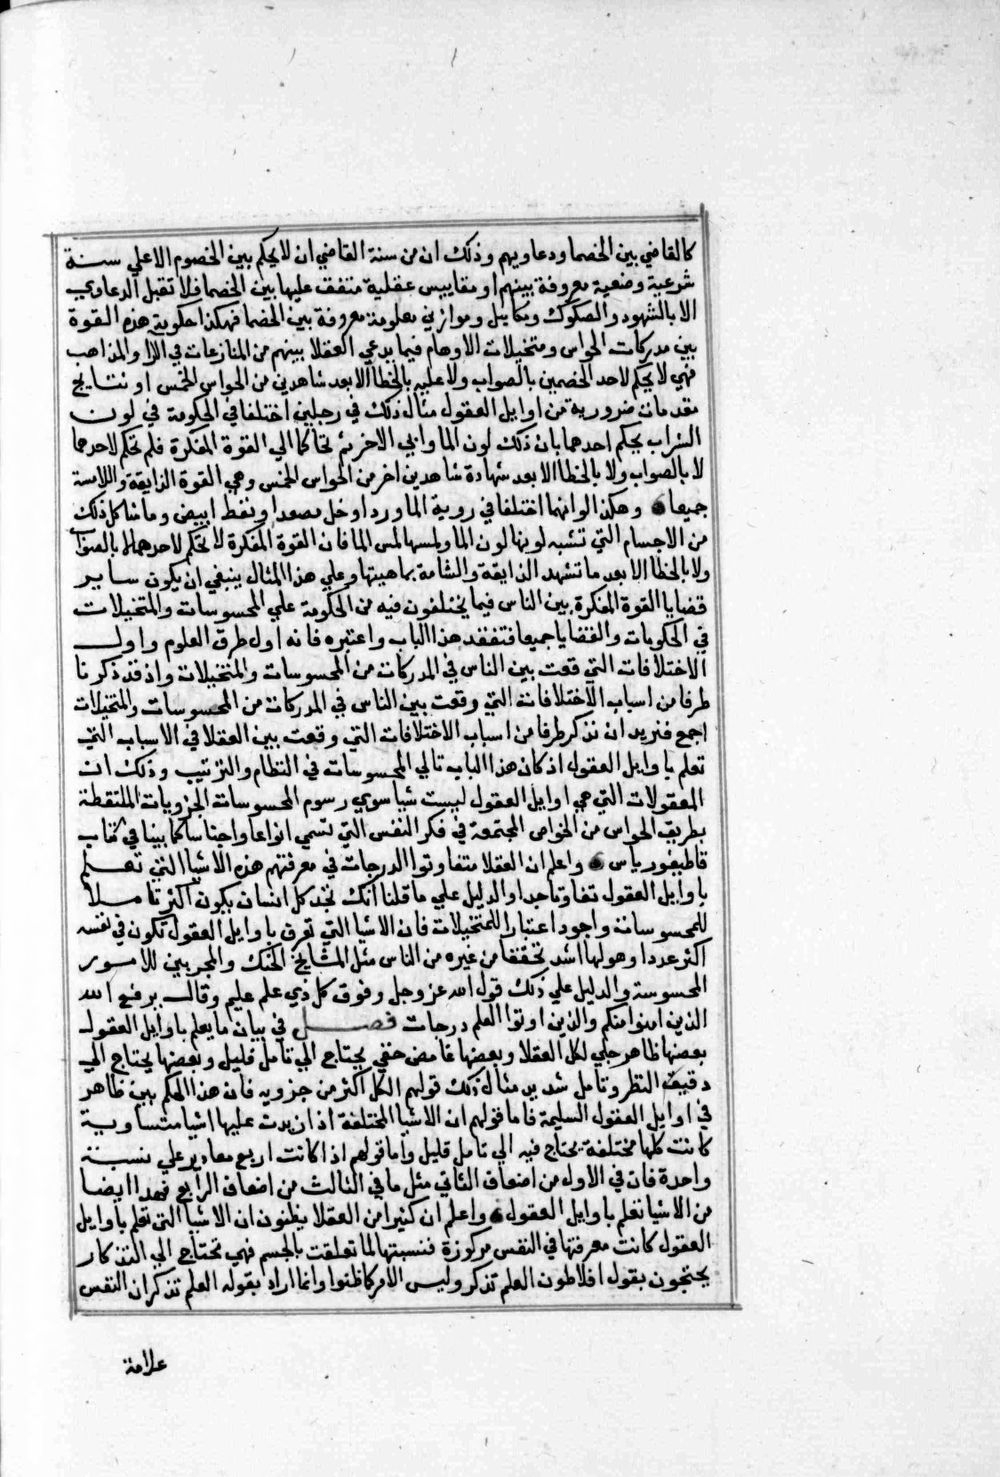 كالقاضي بين الخصما ودعاويهم وذلك ان من سنة القاضي ان لا يحكم بين الخصوم الا علي سنة
شرعية وضعية معروفة بينهم او مقاييس عقلية متفف عليها بين الخصما فلا تقبل الدعاوي
الا بالشهود والصكوك ومكاييل وموازين معلومة معروفة بين الخصما فهكذا حكومة هذه القوة
بين مدركات الحواس ومتخيلات الاوهام فيما يدعي العقلا بينهم من المنازعات في الآرا والمذاهب
فهي لا يحكم لاحد الخصمين بالصواب ولا عليه بالخطا الا بعد شاهدين من الحواس الخمس او نتايج
مقدمات ضرورية من اوايل العقول مثال ذلك في رجلين اختلفا في الحكومة في لون
الشراب يحكم احدهما بان ذلك لون الما وابي الاخر ثم تحاكما الي القوة المفكرة فلم تحكم لاحدهما
لا بالصواب ولا بالخطا الا بعد شهادة شاهدين اخر من الحواس الخمس وهي القوة الذايقة واللامسة
جميعا وهكذا لو انهما اختلفا في روية الما ورد او خل مصعد او نفط ابيض وما شاكل ذلك
من الاجسام التي تشبه لونها لون الما ولمسها لمس الما فان القوة المفكرة لا تحكم لاحدهما لا بالصواب
ولا بالخطا الا بعد ما تشهد الذايقة والشامة بماهيتها وعلي هذا المثال ينبغي ان يكون ساير
قضايا القوة المفكرة بين الناس فيما يختلفون فيه من الحكومة علي المحسوسات والمتخيلات
في الحكومات والقضايا جميعا فتفقد هذا الباب واعتبره فانه اول طرق العلوم واول
الاختلافات التي قعت بين الناس في المدركات من المحسوسات والمتخيلات واذ قد ذكرنا
طرفا من اسباب الاختلافات التي وقعت بين الناس في المدركات من المحسوسات والمتخيلات
اجمع فنريد ان نذكر طرفا من اسباب الاختلافات التي وقعت بين العقلا في الاسباب التي
تعلم باوايل العقول اذ كان هذا الباب تالي المحسوسات في النظام والترتيب وذلك ان
المعقولات التي هي اوايل العقول ليست شيا سوي رسوم المحسوسات الجزويات الملتقطة
بطريق الحواس من الخواص المجتمعة في فكر النفس التي تسمي انواعا واجناسا كما بينا في كتاب
قاطيغورياس واعلم ان العقلا متفاوتوا الدرجات في معرفتهم هذه الاشيا التي تعلم
باوايل العقول تفاوتا جدا والدليل علي ما قلنا انك تجد كل انسان يكون اكثر تاملا
للمحسوسات واجود اعتبارا للمتخيلات فان الاشيا التي تعرف باوايل العقول تكون في نفسه
اكثر عددا وهو لها اشد تحققا من غيره من الناس مثل المشايخ الحنك والمجربين للامور
المحسوسة والدليل علي ذلك قول الله عز وجل وفوق كل ذي علم عليم وقال يرفع الله
الذين امنوا منكم والذين اوتوا العلم درجات فصل في بيان ما يعلم باوايل العقول
بعضها ظاهر جلي لكل العقلا وبعضها غامض خفي يحتاج الي تامل قليل وبعضها يحتاج الي
دقيق النظر وتامل شديد مثال ذلك قولهم الكل اكثر من جزويه فان هذا الحكم بين ظاهر
في اوايل العقول السليمة فاما قولهم ان الاشيا المختلفة اذا زيدت عليها اشيا متساوية
كانت كلها مختلفة يحتاج فيه الي تامل قليل واما قولهم اذا كانت اربع مقادير علي نسبة
واحدة فان في الاول من اضعاف الثاني مثل ما في الثالث من اضعاف الرابع فهذا ايضا
من الاشيا تعلم باوايل العقول واعلم ان كثيرا من العقلا يظنون ان الاشيا التي تعلم باوايل
العقول كانت معرفتها في النفس مركوزة فنسيتها لما تعلقت بالجسم فهي تحتاج الي التذكار
يحتجون بقول افلاطون العلم تذكر وليس الامر كما ظنوا وانما اراد بقوله العلم تذكر ان النفس
علامة